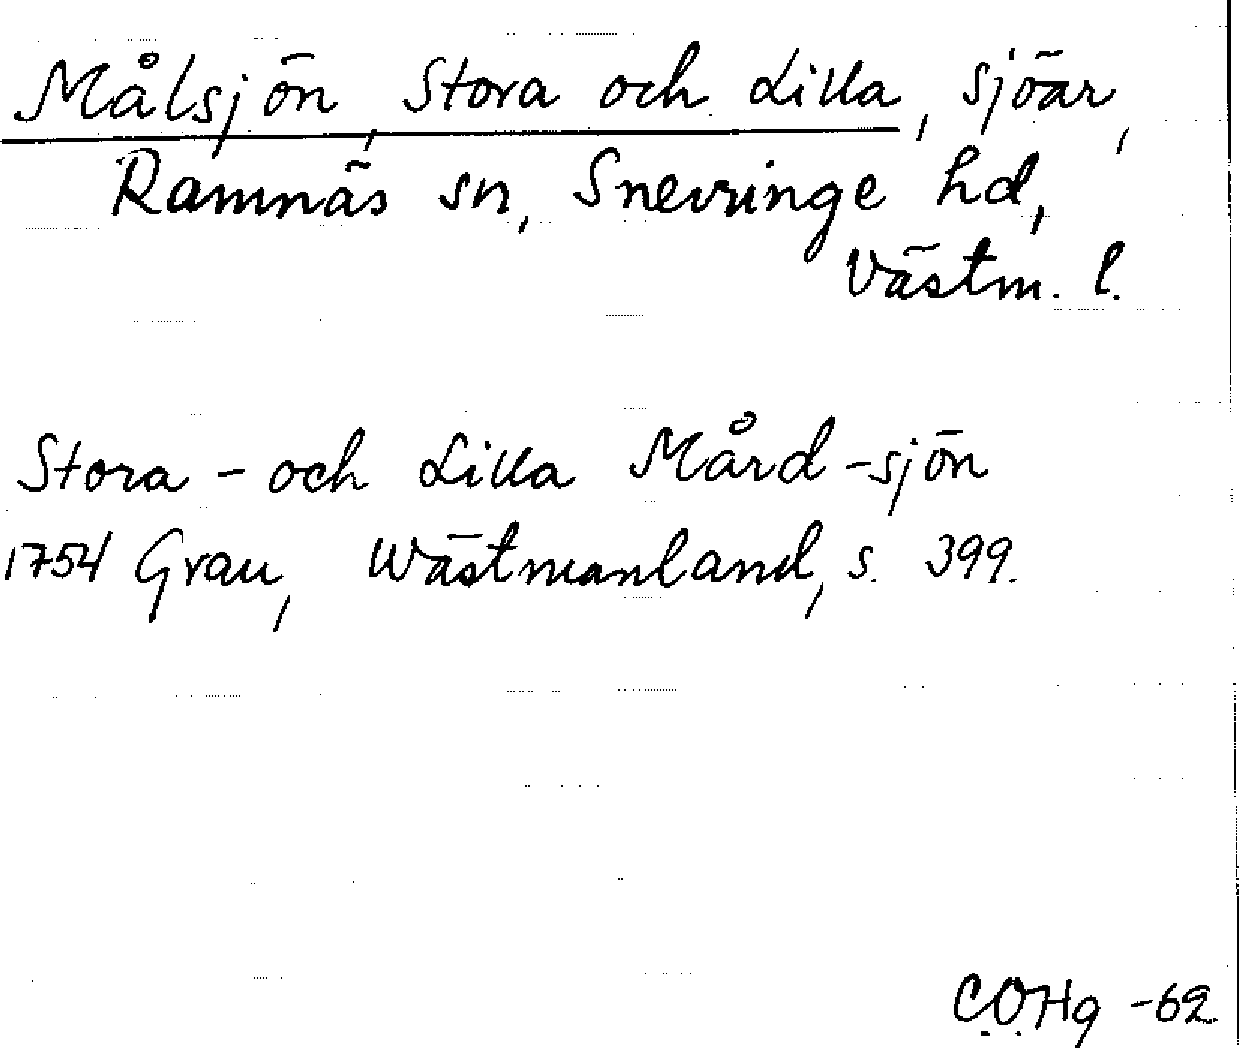 Målsjön, Stora och Lilla, sjöar,
Ramnäs sn, Snevringe hd,
Västm. l.
Stora - och Lilla Mård-sjön
1754 Grau, Wästmanland, s. 399.
C.O.Hg -62